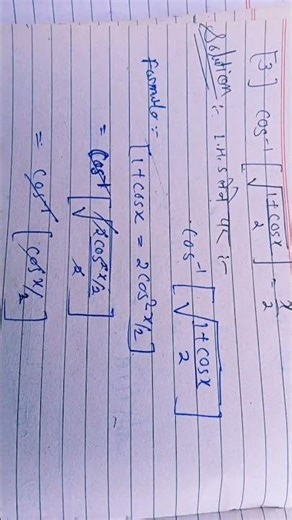 [3] cos⁻¹ [√(1+cosx/2)] = x/2
Solution :- L.H.S लेने पर :-
cos⁻¹ [√(1+cosx/2)]
Formula :- [1+cosx = 2cos²x/2]
= cos⁻¹ [√(2cos²x/2 / 2)]
= cos⁻¹ [cosx/2]